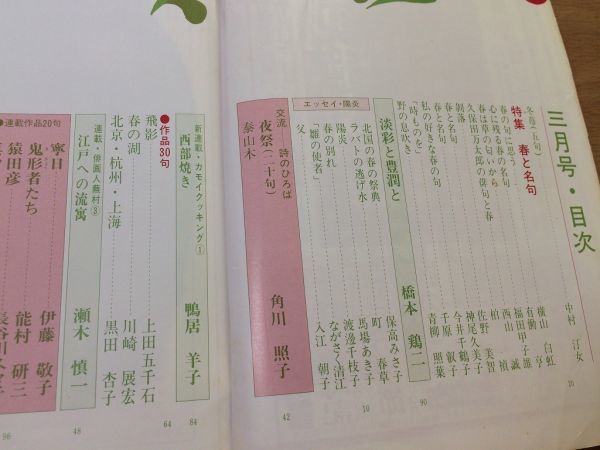 三月号・目次
中村 汀女 10
特集 春と名句
春の句に思う 横山 白虹
心に残る春の名句 有働 亨
春は草の匂いから 福田甲子雄
久保田万太郎の俳句と春 西山 誠
剝落 柏 禎
春と名句 佐野 美智
春と名句 神尾久美子
私の好きな春の句 今井千鶴子
「時」のものを 千原 叡子
野の息吹き 青柳 照葉
淡彩と豊潤と 橋本 鶏二 90
エッセイ・陽炎
北国の春の祭典 保高みさ子
ラバトの逃げ水 町 春草
陽炎 馬場あき子
春の別れ 渡邊千枝子
「雛の使者」 ながさく清江
父 入江 朝子 10
交流 詩のひろば
夜祭(二十句) 角川 照子 42
泰山木
新連載・カモイクッキング①
西部焼き 鴨居 羊子 84
●作品30句
飛影 上田五千石
春の湖 川崎 展宏
北京・杭州・上海 黒田 杏子 64
連載・俳画人蕪村③
江戸への流寓 瀬木 慎一 48
●連載作品20句
寧日 伊藤 敬子
鬼形者たち 能村 研三
猿田彦 96